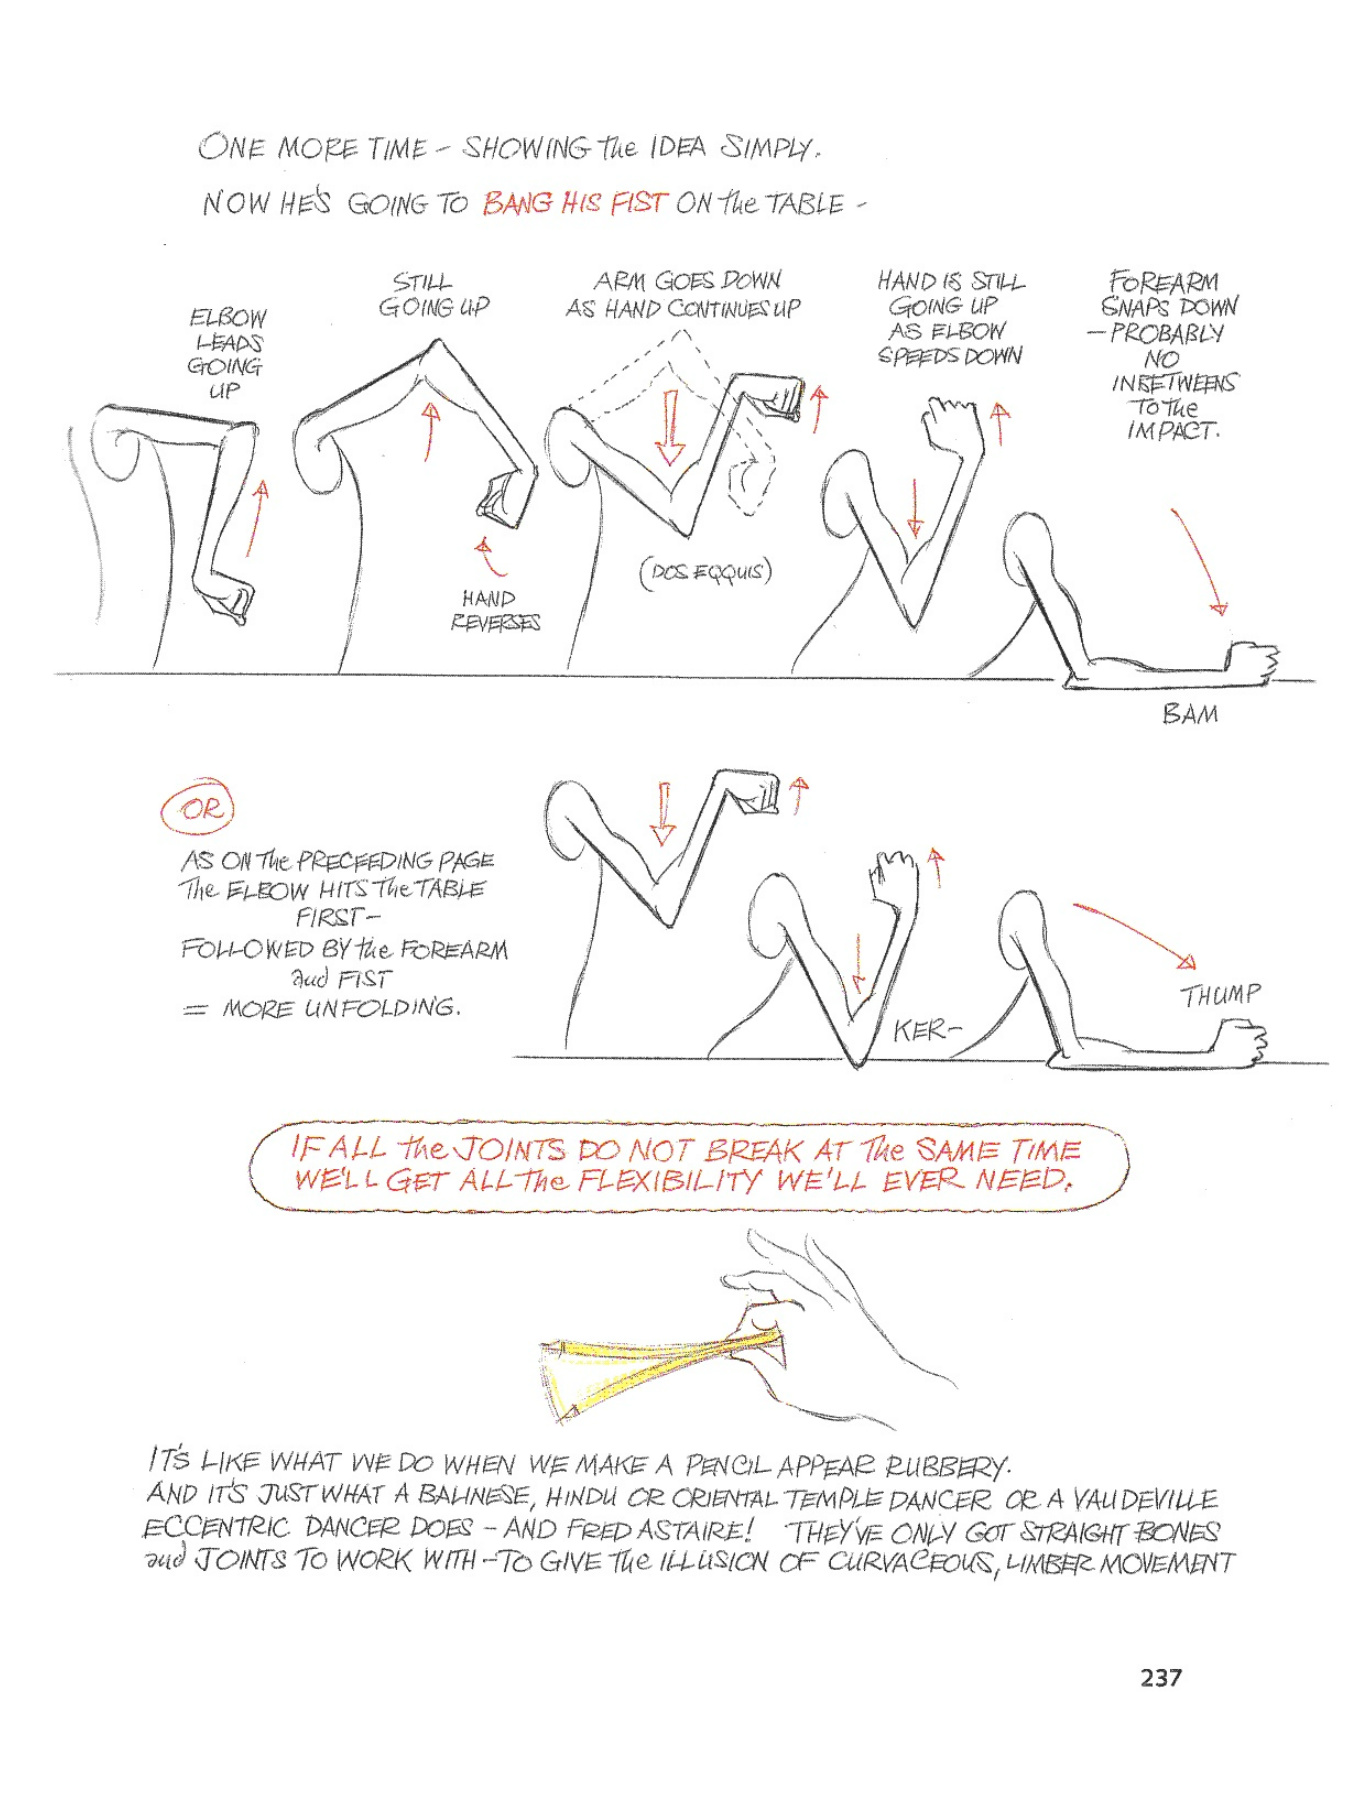 ONE MORE TIME – SHOWING the IDEA SIMPLY.
NOW HE'S GOING TO BANG HIS FIST ON the TABLE –
ELBOW
LEADS
GOING
UP
STILL
GOING UP
ARM GOES DOWN
AS HAND CONTINUES UP
HAND IS STILL
GOING UP
AS ELBOW
SPEEDS DOWN
FOREARM
SNAPS DOWN
– PROBABLY
NO
INBETWEENS
TO the
IMPACT.
HAND
REVERSES
(DOS EQQUIS)
BAM
OR
AS ON the PRECEEDING PAGE
The ELBOW HITS The TABLE
FIRST –
FOLLOWED BY the FOREARM
and FIST
= MORE UNFOLDING.
KER–
THUMP
IF ALL the JOINTS DO NOT BREAK AT The SAME TIME
WE'LL GET ALL The FLEXIBILITY WE'LL EVER NEED.
IT'S LIKE WHAT WE DO WHEN WE MAKE A PENCIL APPEAR RUBBERY.
AND IT'S JUST WHAT A BALINESE, HINDU OR ORIENTAL TEMPLE DANCER OR A VAUDEVILLE
ECCENTRIC DANCER DOES – AND FRED ASTAIRE! THEY'VE ONLY GOT STRAIGHT BONES
and JOINTS TO WORK WITH – TO GIVE The ILLUSION OF CURVACEOUS, LIMBER MOVEMENT
237